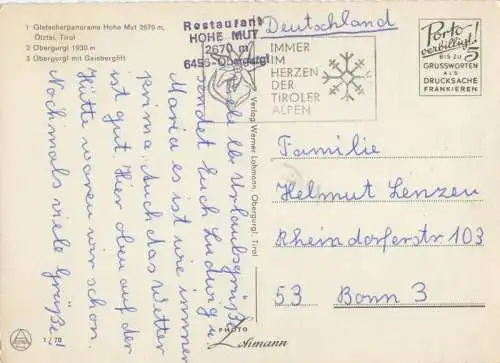 1 Gletscherpanorama Hohe Mut 2670 m,
Ötztal, Tirol
2 Obergurgl 1930 m
3 Obergurgl mit Geisberglift
Restaurant
HOHE MUT
2670 m
6456-Obergurgl
Deutschland
IMMER
IM
HERZEN
DER
TIROLER
ALPEN
Porto
verbilligt!
BIS ZU 5
GRUSSWORTEN
ALS
DRUCKSACHE
FRANKIEREN
Viele lb. Urlaubsgrüße
sendet Euch Ludwig u.
Maria es ist wie immer
prima, auch das Wetter
ist gut. Hier oben auf der
Hütte waren wir schon.
Nochmals viele Grüße!
Verlag Werner Lohmann, Obergurgl, Tirol
Familie
Helmut Lenzen
Rheindorferstr 103
53 Bonn 3
PHOTO
Lohmann
1/70